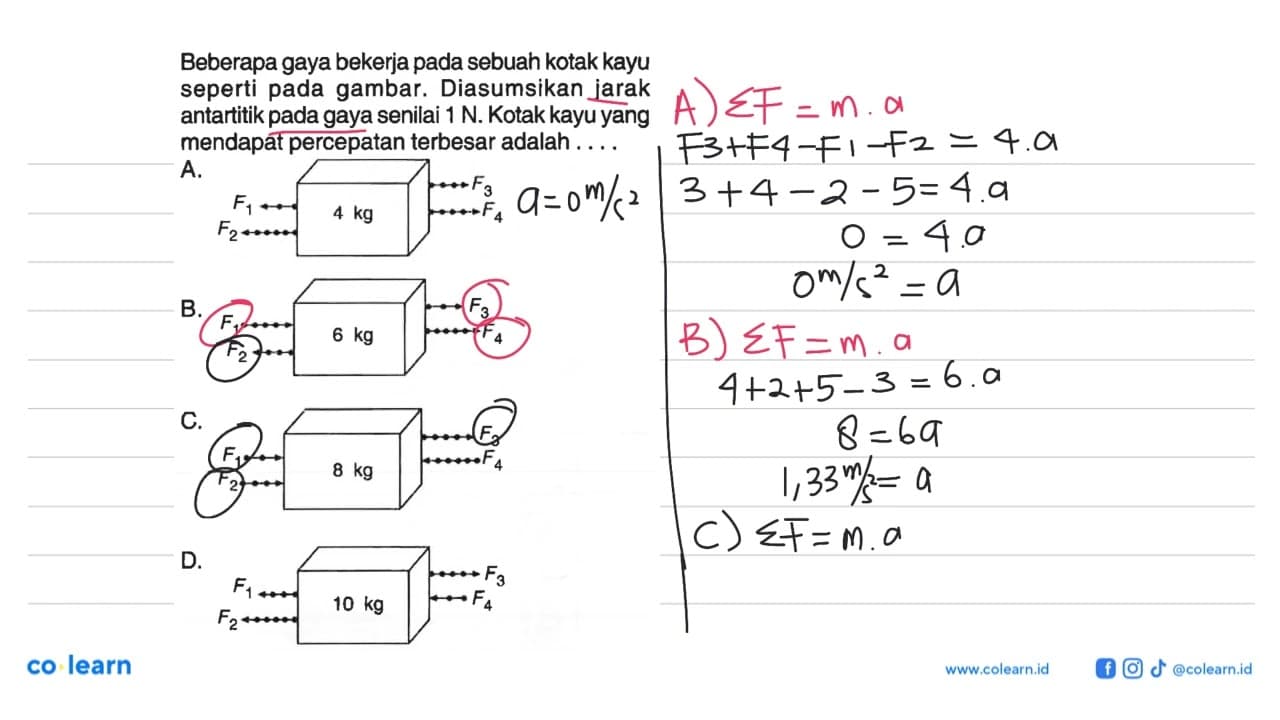 Beberapa gaya bekerja pada sebuah kotak kayu
seperti pada gambar. Diasumsikan jarak
antartitik pada gaya senilai 1 N. Kotak kayu yang
mendapat percepatan terbesar adalah . . . .
A.
F₁
F₂
4 kg
F₃
F₄
a=0 m/s²
B.
F₁
F₂
6 kg
F₃
F₄
C.
F₁
F₂
8 kg
F₃
F₄
D.
F₁
F₂
10 kg
F₃
F₄
A) ΣF = m . a
F3+F4-F1-F2 = 4.a
3+4-2-5=4.a
0 = 4.a
0 m/s² = a
B) ΣF=m.a
4+2+5-3 = 6.a
8=6a
1,33 m/s² = a
C) ΣF=m.a
co learn
www.colearn.id
@colearn.id